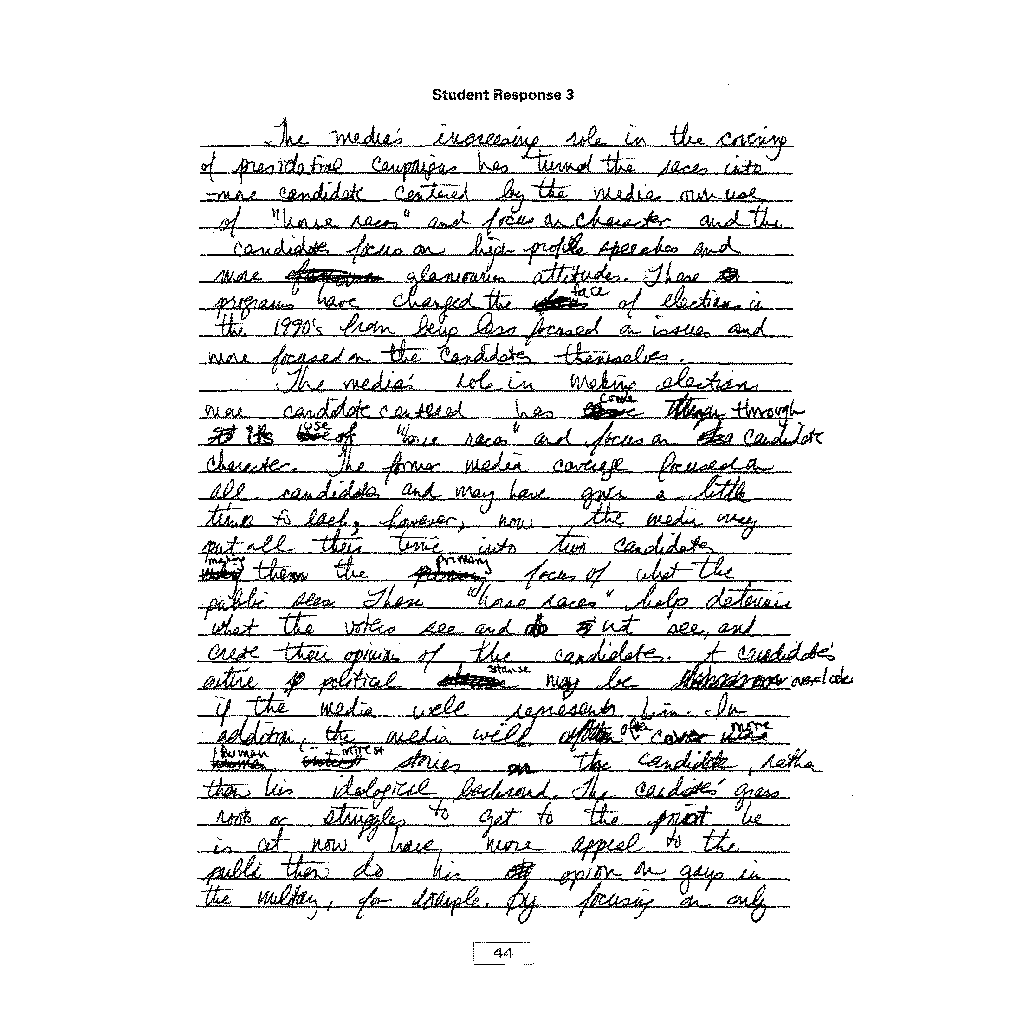 Student Response 3
The media's increasing role in the covering
of presidential campaigns has turned the races into
more candidate centered by the media's own use
of "horse races" and focus on character and the
candidates focus on high profile speeches and
more glamourous attitudes. These
programs have changed the face of elections in
the 1990's from being less focused on issues and
more focused on the candidates themselves.
The media's role in making election
more candidate centered has come through
use of "horse races" and focus on candidate
character. The former media coverage focused on
all candidates and may have given a little
time to each, however, now the media may
put all their time into two candidates
making them the primary focus of what the
public sees. These "horse races" help determine
what the voters see and not see, and
create their opinions of the candidates. A candidate's
entire political stanse may be overlooked
if the media well represents him. In
addition, the media will often cover more
human interest stories on the candidate, rather
than his idological backround. The candidates' grass
roots or struggles to get to the point he
is at now have more appeal to the
public then do his opion on gays in
the military, for example. By focusing on only
44